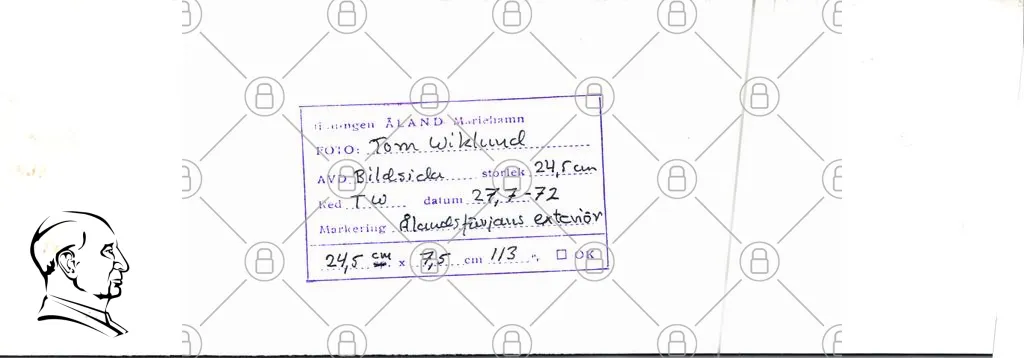 tidningen ÅLAND Mariehamn
FOTO: Tom Wiklund
AVD Bildsida storlek 24,5 cm
Red. TW datum 27,7-72
Markering Ålandsfärjans exteriör
24,5 cm x 7,5 cm 113 %. ☐ OK